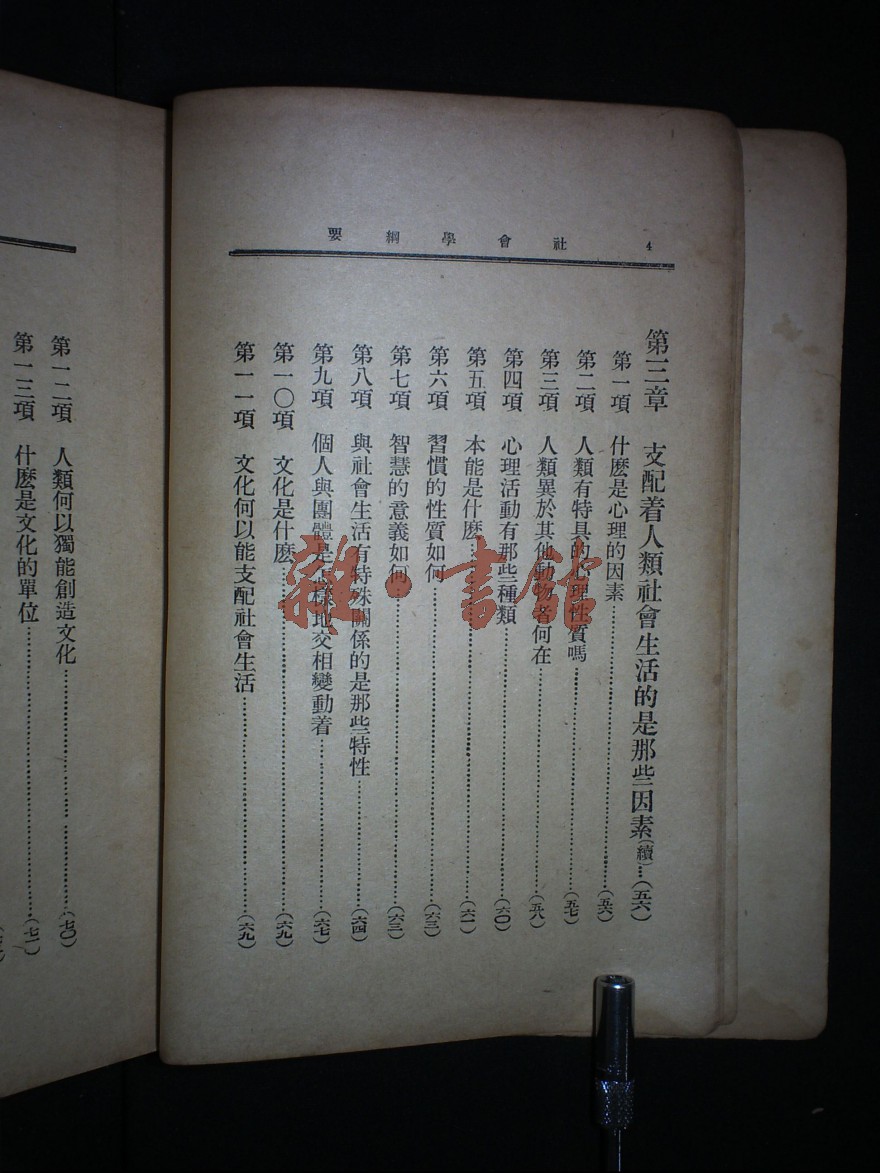 4 社會學綱要
第三章 支配着人類社會生活的是那些因素(續)…(五六)
第一項 什麽是心理的因素……(五六)
第二項 人類有特具的心理性質嗎……(五七)
第三項 人類異於其他動物者何在……(五八)
第四項 心理活動有那些種類……(六〇)
第五項 本能是什麽……(六一)
第六項 習慣的性質如何……(六三)
第七項 智慧的意義如何……(六三)
第八項 與社會生活有特殊關係的是那些特性……(六四)
第九項 個人與團體是怎樣地交相變動着……(六七)
第一〇項 文化是什麽……(六九)
第一一項 文化何以能支配社會生活……(六九)
第一二項 人類何以獨能創造文化……(七〇)
第一三項 什麽是文化的單位……(七一)
雜·書館